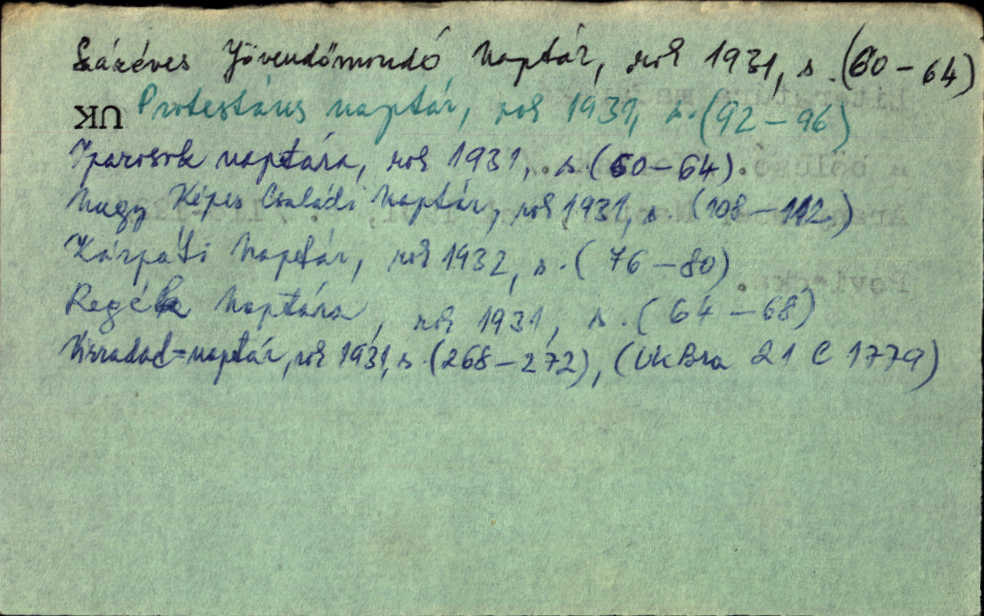 Százéves Jövendőmondó Naptár, rok 1931, s. (60-64)
UK Protestáns naptár, rok 1931, s. (92-96)
Iparosok naptára, rok 1931, s (60-64).
Nagy Képes Családi Naptár, rok 1931, s. (108-112.)
Kárpáti Naptár, rok 1932, s. (76-80)
Regék Naptára, rok 1931, s. (64-68)
Virradat=naptár, rok 1931, s. (268-272), (UkBra 21 C 1779)